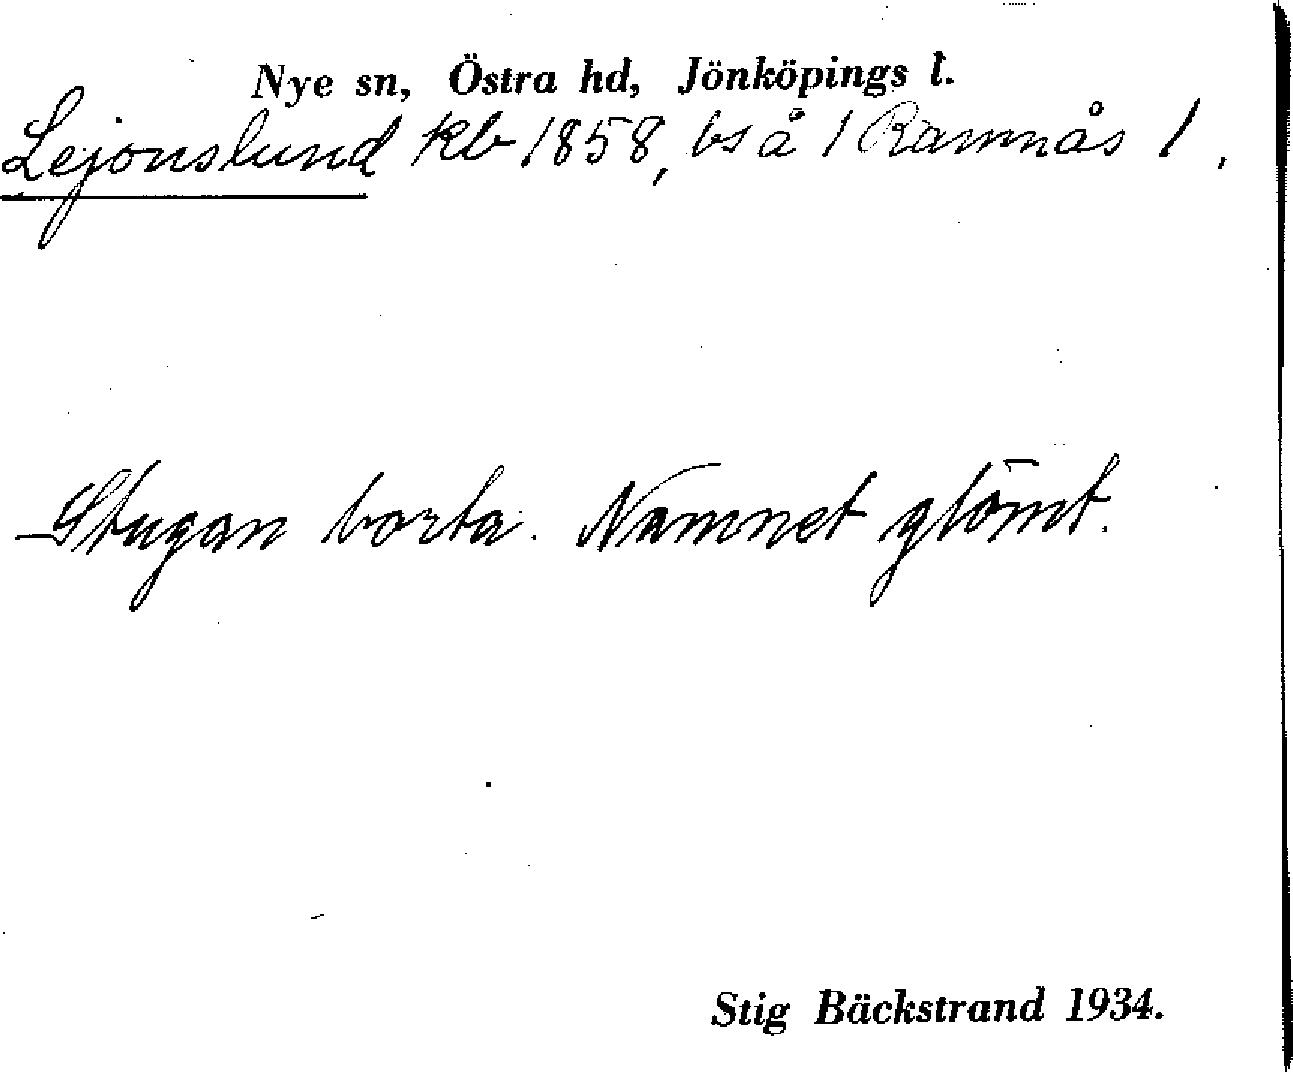 Nye sn, Östra hd, Jönköpings l.
Lejonslund kb 1858, bs å / Ramnås /.
Stugan borta. Namnet glömt.
Stig Bäckstrand 1934.